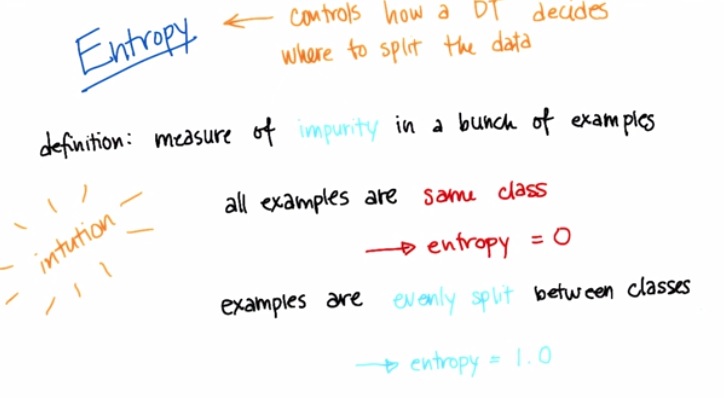 Entropy ← controls how a DT decides
where to split the data
definition: measure of impurity in a bunch of examples
all examples are same class
→ entropy = 0
intution
examples are evenly split between classes
→ entropy = 1.0